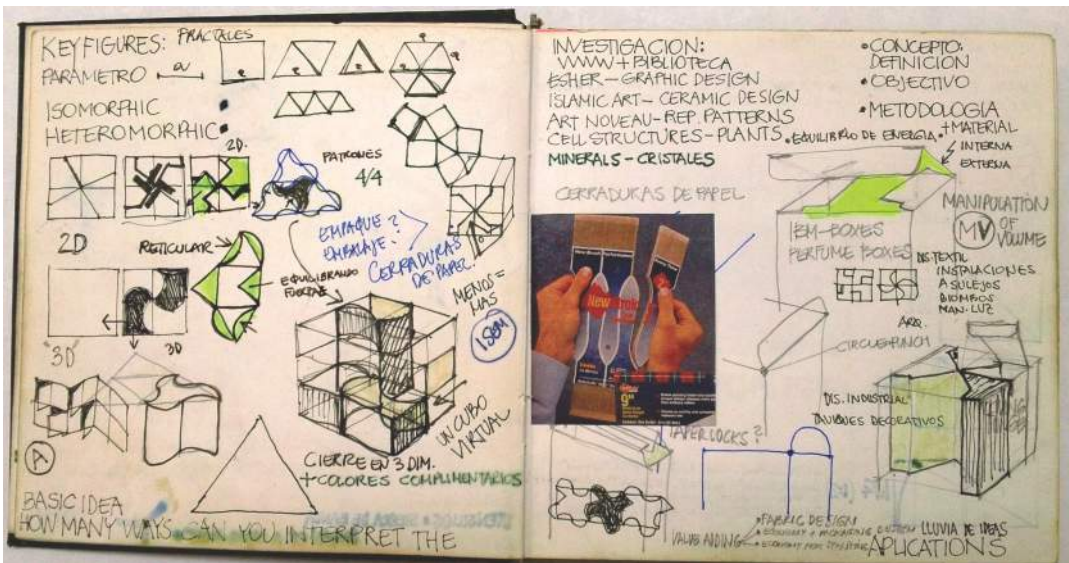 KEY FIGURES: FRACTALES
PARAMETRO a
e e e e e e
ISOMORPHIC
HETEROMORPHIC
2D.
PATRONES
4/4
2D
RETICULAR
EMPAQUE?
EMBALAJE?
CERRADURAS
DE PAPEL.
EQUILIBRANDO
FUERZAS
MENOS =
MAS
"3D"
3D
UN CUBO
VIRTUAL
A
CIERRE EN 3 DIM.
+ COLORES COMPLIMENTARIOS
BASIC IDEA
HOW MANY WAYS CAN YOU INTERPRET THE
INVESTIGACION:
WWW + BIBLIOTECA
ESHER - GRAPHIC DESIGN
ISLAMIC ART - CERAMIC DESIGN
ART NOVEAU - REP. PATTERNS
CELL STRUCTURES - PLANTS
MINERALS - CRISTALES
• CONCEPTO:
DEFINICION
• OBJECTIVO
• METODOLOGIA
• EQUILIBRIO DE ENERGIA.
+ MATERIAL
INTERNA
EXTERNA
CERRADURAS DE PAPEL
MANIPULATION
OF
VOLUME
MV
IBM-BOXES
PERFUME BOXES
DIS. TEXTIL
INSTALACIONES
ASULEJOS
BIOMBOS
MAN. LUZ
ARQ.
New
9"
CIRCLE PUNCH
DIS. INDUSTRIAL
TAVIQUES DECORATIVOS
PAPER LOCKS?
VALUE ADDING
• FABRIC DESIGN
LLUVIA DE IDEAS
APLICATIONS